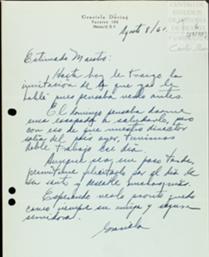 Graciela Döring
México D.F.
Agosto 8/61.
Estimado Maestro:
Hasta hoy le traigo la
invitación de la que ya le
hablé pues pensaba verlo antes
El domingo pensaba hacerme
una escapada a saludarlo, pero
con eso de que nuestro director
salía del país ayer, tuvimos
doble trabajo ese día.
Aunque sea un poco tarde,
permítame felicitarlo por el día de
su santo y desearle
Esperando verlo pronto quedo
como siempre su amiga y segura
servidora.
Graciela